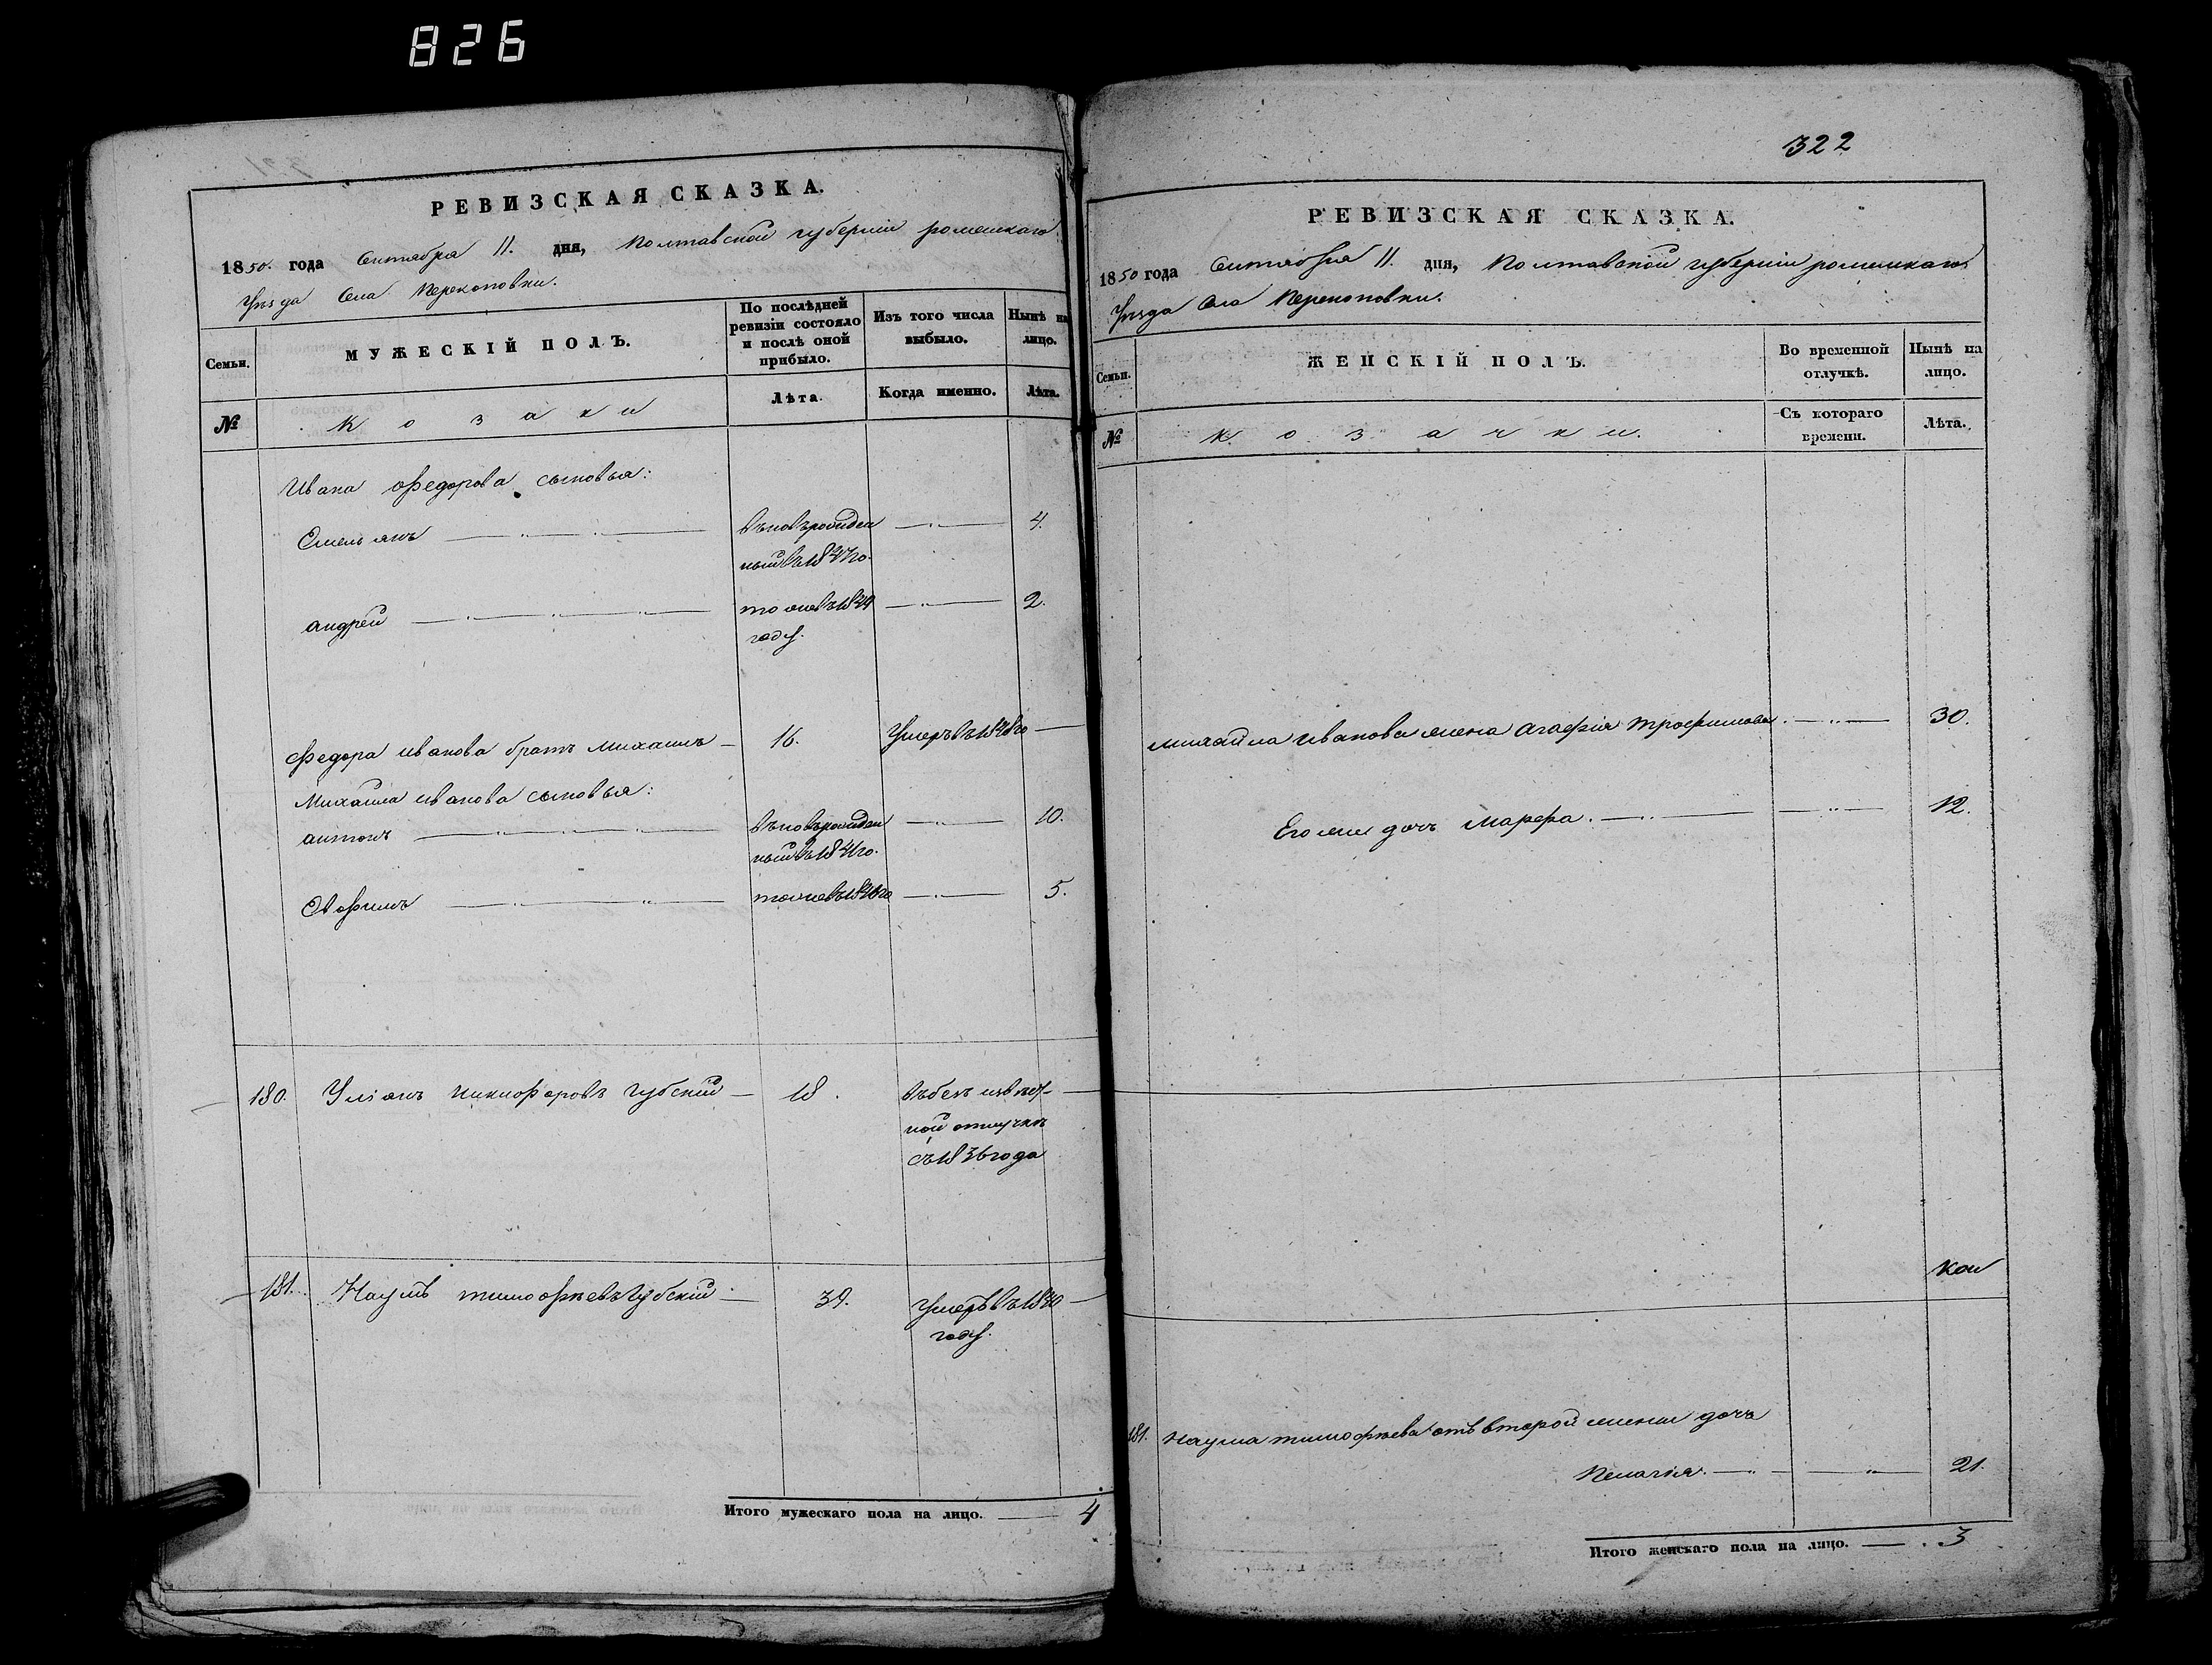 826
РЕВИЗСКАЯ СКАЗКА.
1850. года Сентября 11. дня, Полтавской губерніи роменскаго
Уѣзда Села Перекоповки.
Семьи.
МУЖЕСКІЙ ПОЛЪ.
По послѣдней ревизіи состояло и послѣ оной прибыло.
Изъ того числа выбыло.
Нынѣ на лицо.
№
козаки
Лѣта.
Когда именно.
Лѣта.
Ивана Федорова сыновья:
Емельянъ вьновьрожден 4.
ный въ 1847го.
андрей тоже въ 1849 2.
году.
Федора иванова братъ михаилъ 16. Умеръ въ 1848го
Михаила иванова сыновья:
антонъ вьновьрожден 10.
ный въ 1841го.
Евфимъ тоже въ 1846го 5.
180. Уліянъ никифоровъ губскій 18. въ бегъ изъ
ной отлучкѣ
съ 1836 года
181. Наумъ тимофѣевъ губскій 39. Умеръ въ 1840
году.
Итого мужескаго пола на лицо. 4
322
РЕВИЗСКАЯ СКАЗКА.
1850 года Сентября 11. дня, Полтавской губерніи роменскаго
Уѣзда Села Перекоповки.
Семьи.
ЖЕНСКІЙ ПОЛЪ.
Во временной отлучкѣ.
Нынѣ на лицо.
№
козачки.
Съ котораго времени.
Лѣта.
михайла иванова жена агафія трофимова. 30.
Его же дочь Марфа. 12.
181. наума тимофѣева отъ второй жены дочь
Пелагія. 21.
Итого женскаго пола на лицо. 3